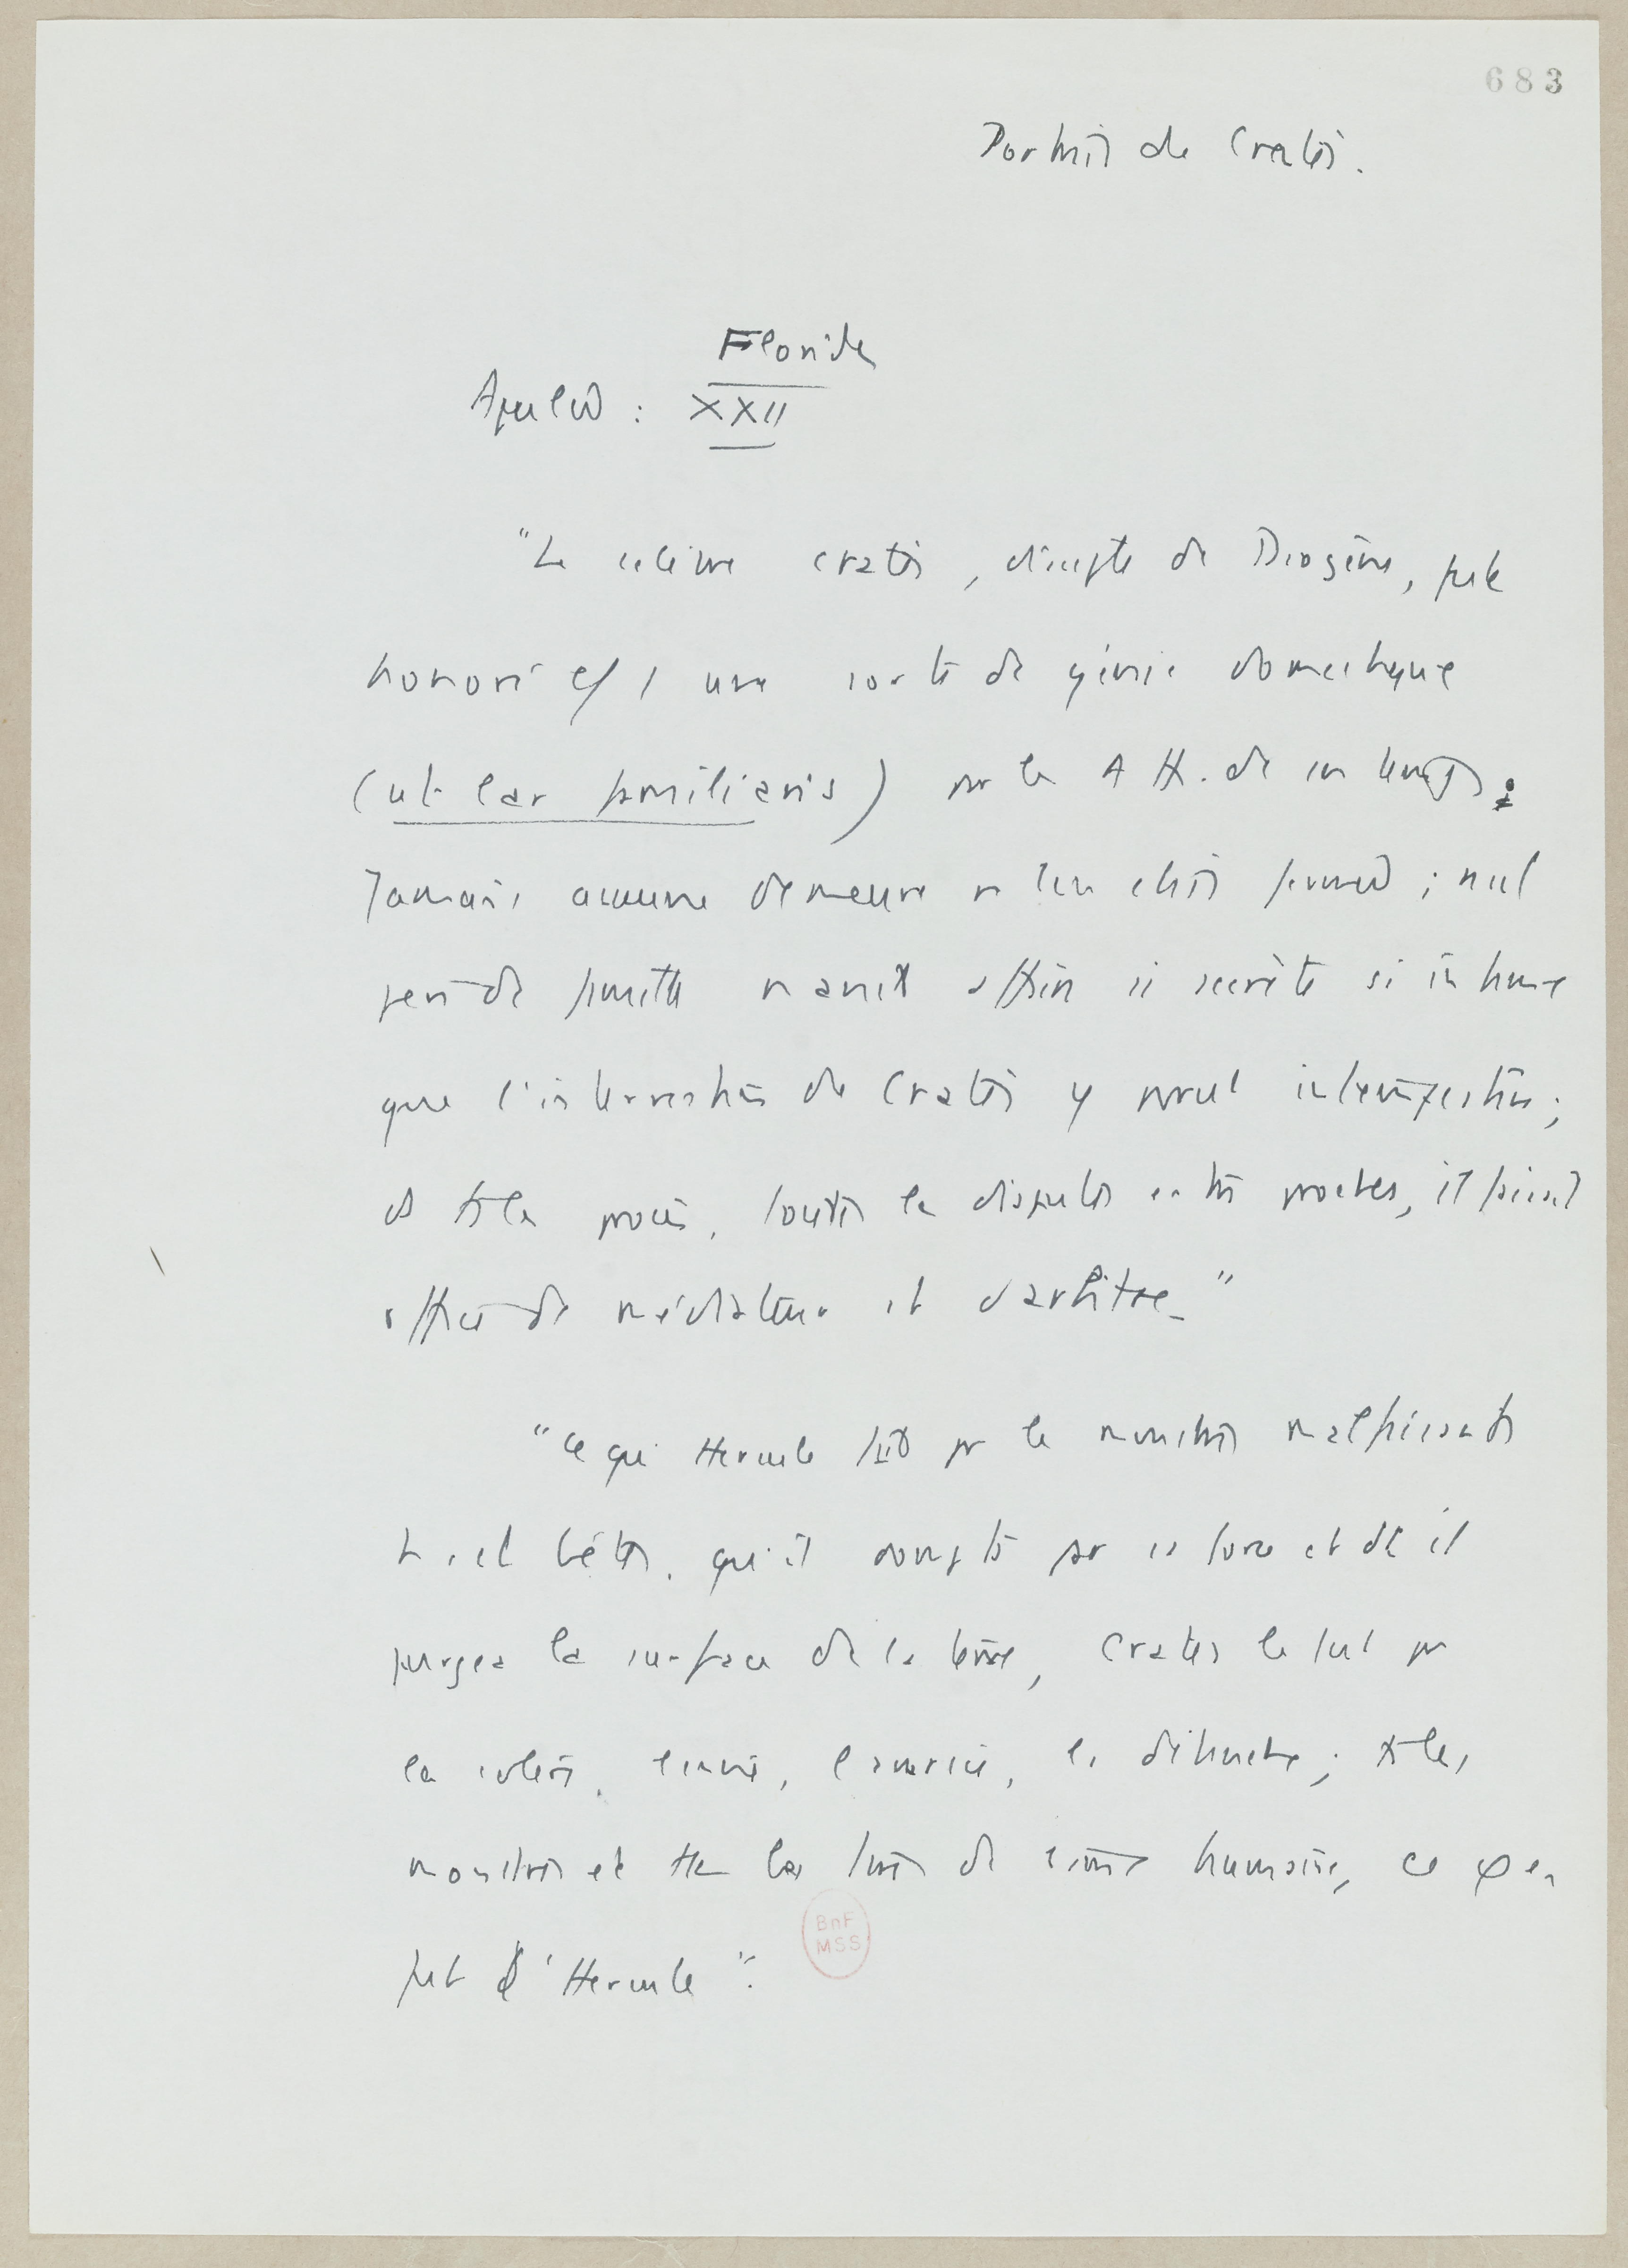 683
Portrait de Cratès.
Florides
Apulée : XXII
"Le célèbre Cratès, disciple de Diogène, fut
honoré c/ une sorte de génie domestique
(ut lar familiaris) par les Ath. de son temps.
Jamais aucune demeure ne lui était fermée ; nul
père de famille n'avait affaire si secrète si intime
que l'intervention de Cratès y parut intempestive ;
et ts les procès, toutes les disputes entre proches, il faisait
office de médiateur et d'arbitre."
"Ce que Hercule fit pr les monstres malfaisants
et bêtes, qu'il dompta par sa force et dt il
purgea la surface de la terre, Cratès le fut pr
la colère, l'envie, l'avarice, la débauche ; ts les
monstres et de l'âme humaine, ce φ en
fut l'Hercule".
BnF
MSS